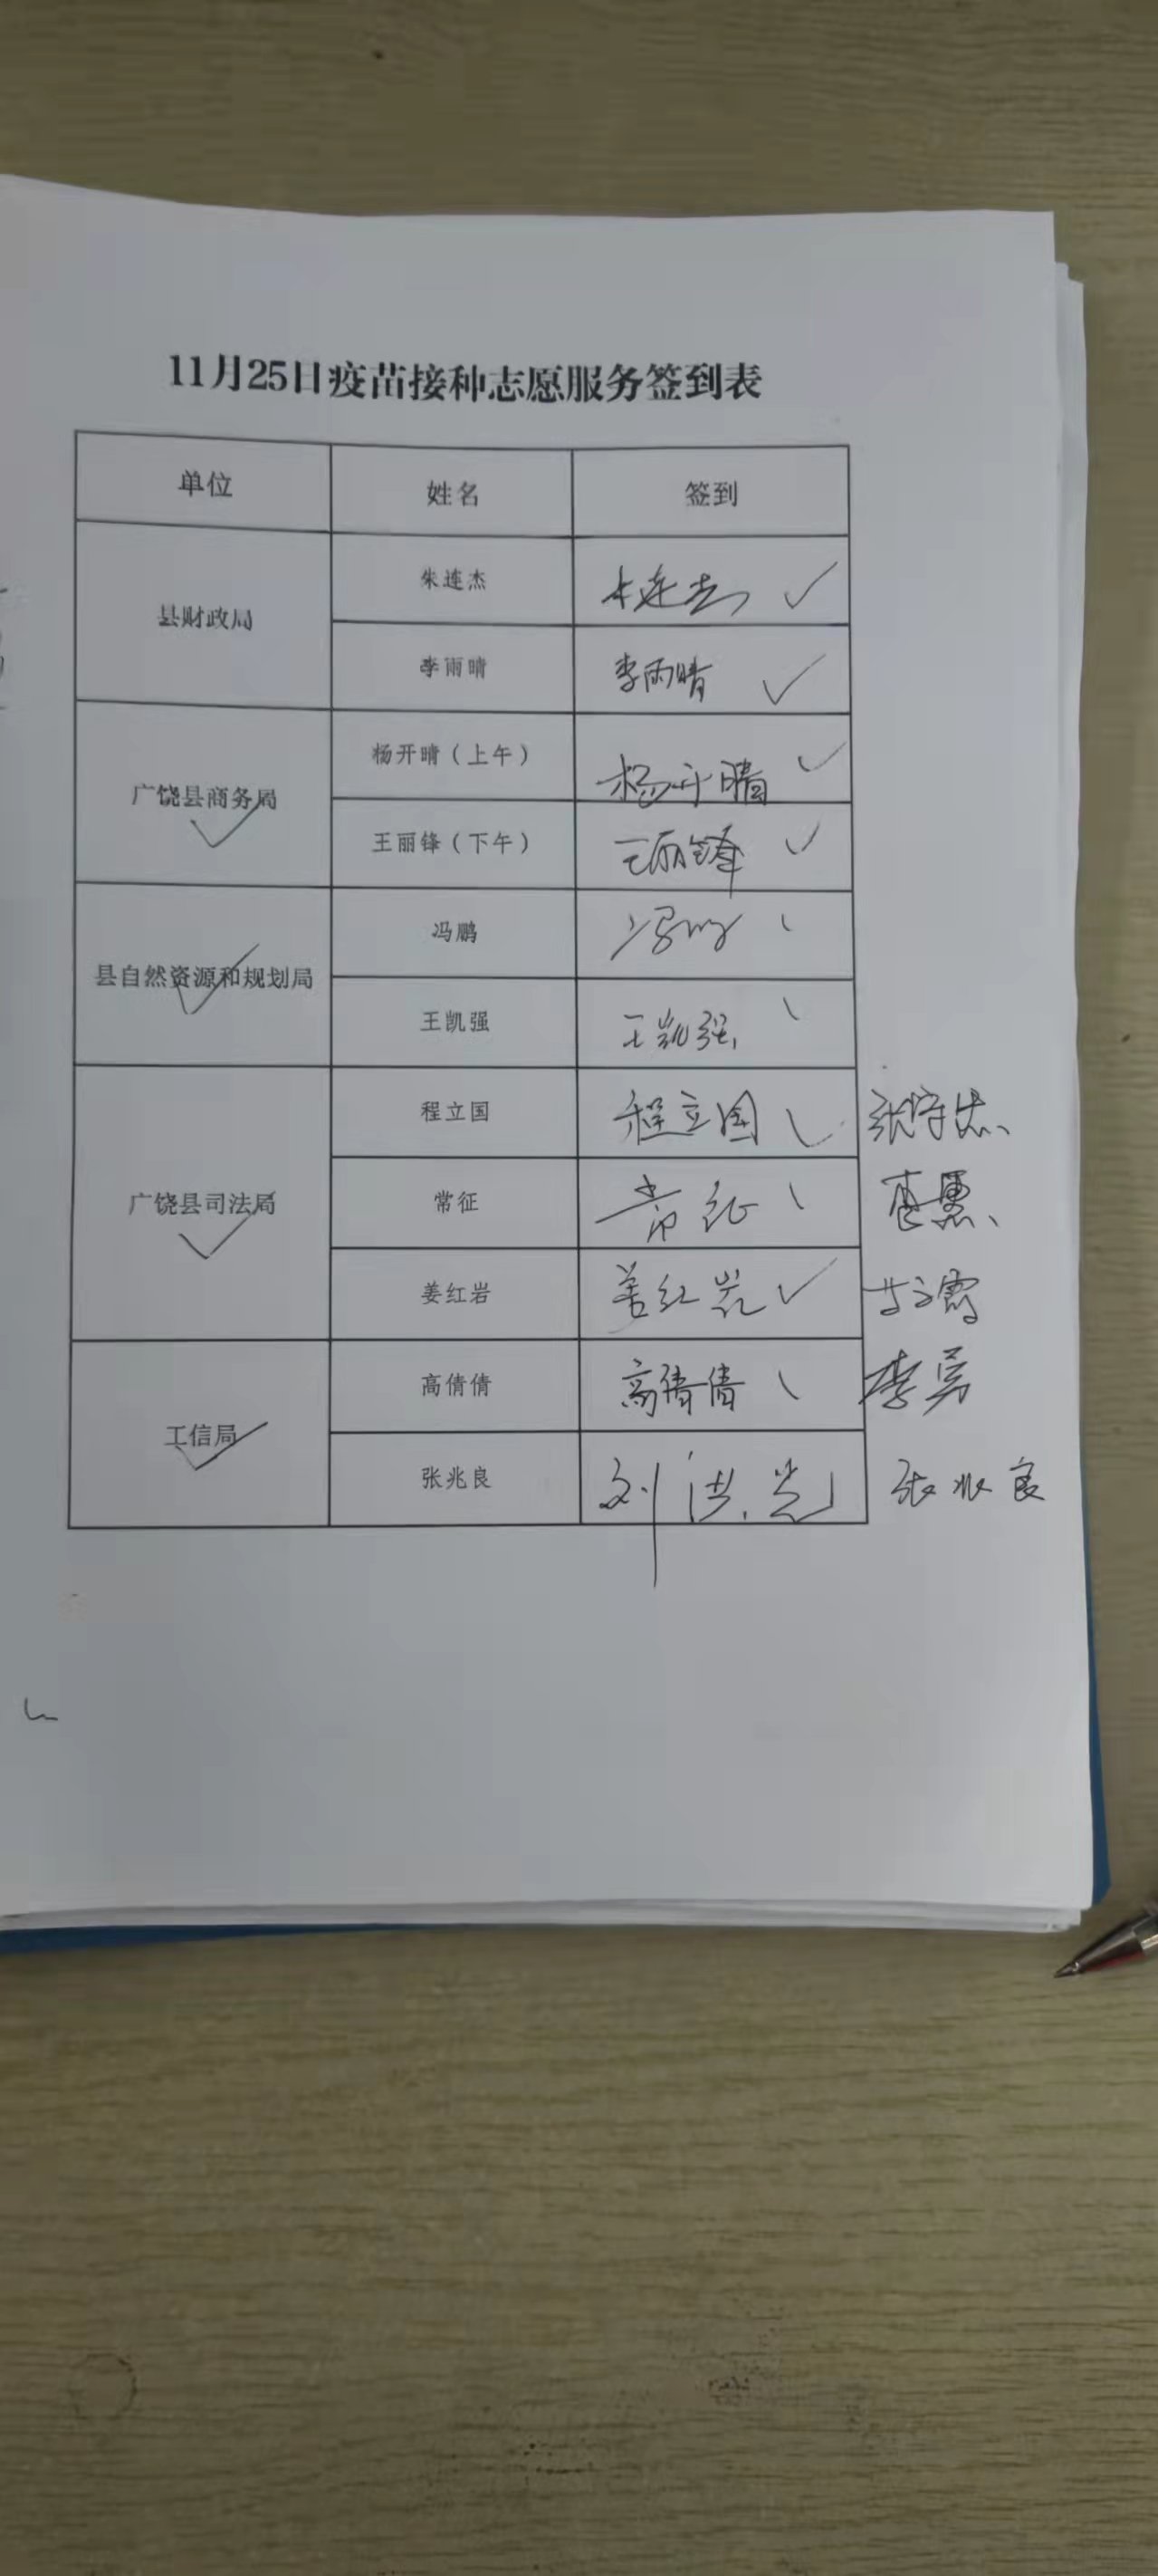 11月25日疫苗接种志愿服务签到表
单位 姓名 签到
县财政局 朱连杰 朱连杰 ✓
李雨晴 李雨晴 ✓
广饶县商务局 ✓ 杨开晴（上午） 杨开晴 ✓
王丽锋（下午） 王丽锋 ✓
县自然资源和规划局 ✓ 冯鹏 冯鹏
王凯强 王凯强
广饶县司法局 ✓ 程立国 程立国 ✓
常征 常征
姜红岩 姜红岩 ✓
工信局 ✓ 高倩倩 高倩倩 李
张兆良 刘洪光 张兆良